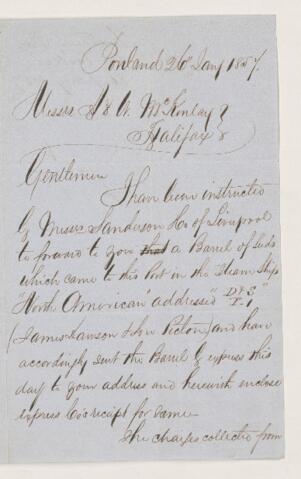 Portland 26th Jany 1857.
Messrs A & W. McKinlay
Halifax
Gentlemen
I have been instructed
by Messrs Sanderson & Co of Liverpool
to forward to you that a Barrel of Seeds
which came to this Port in the Steam Ship
"North American" addressed
(James Lawson Esqr Pictou) and have
accordingly sent the Barrel by express this
day to your address and herewith enclose
express Co's receipt for same
The charges collected from